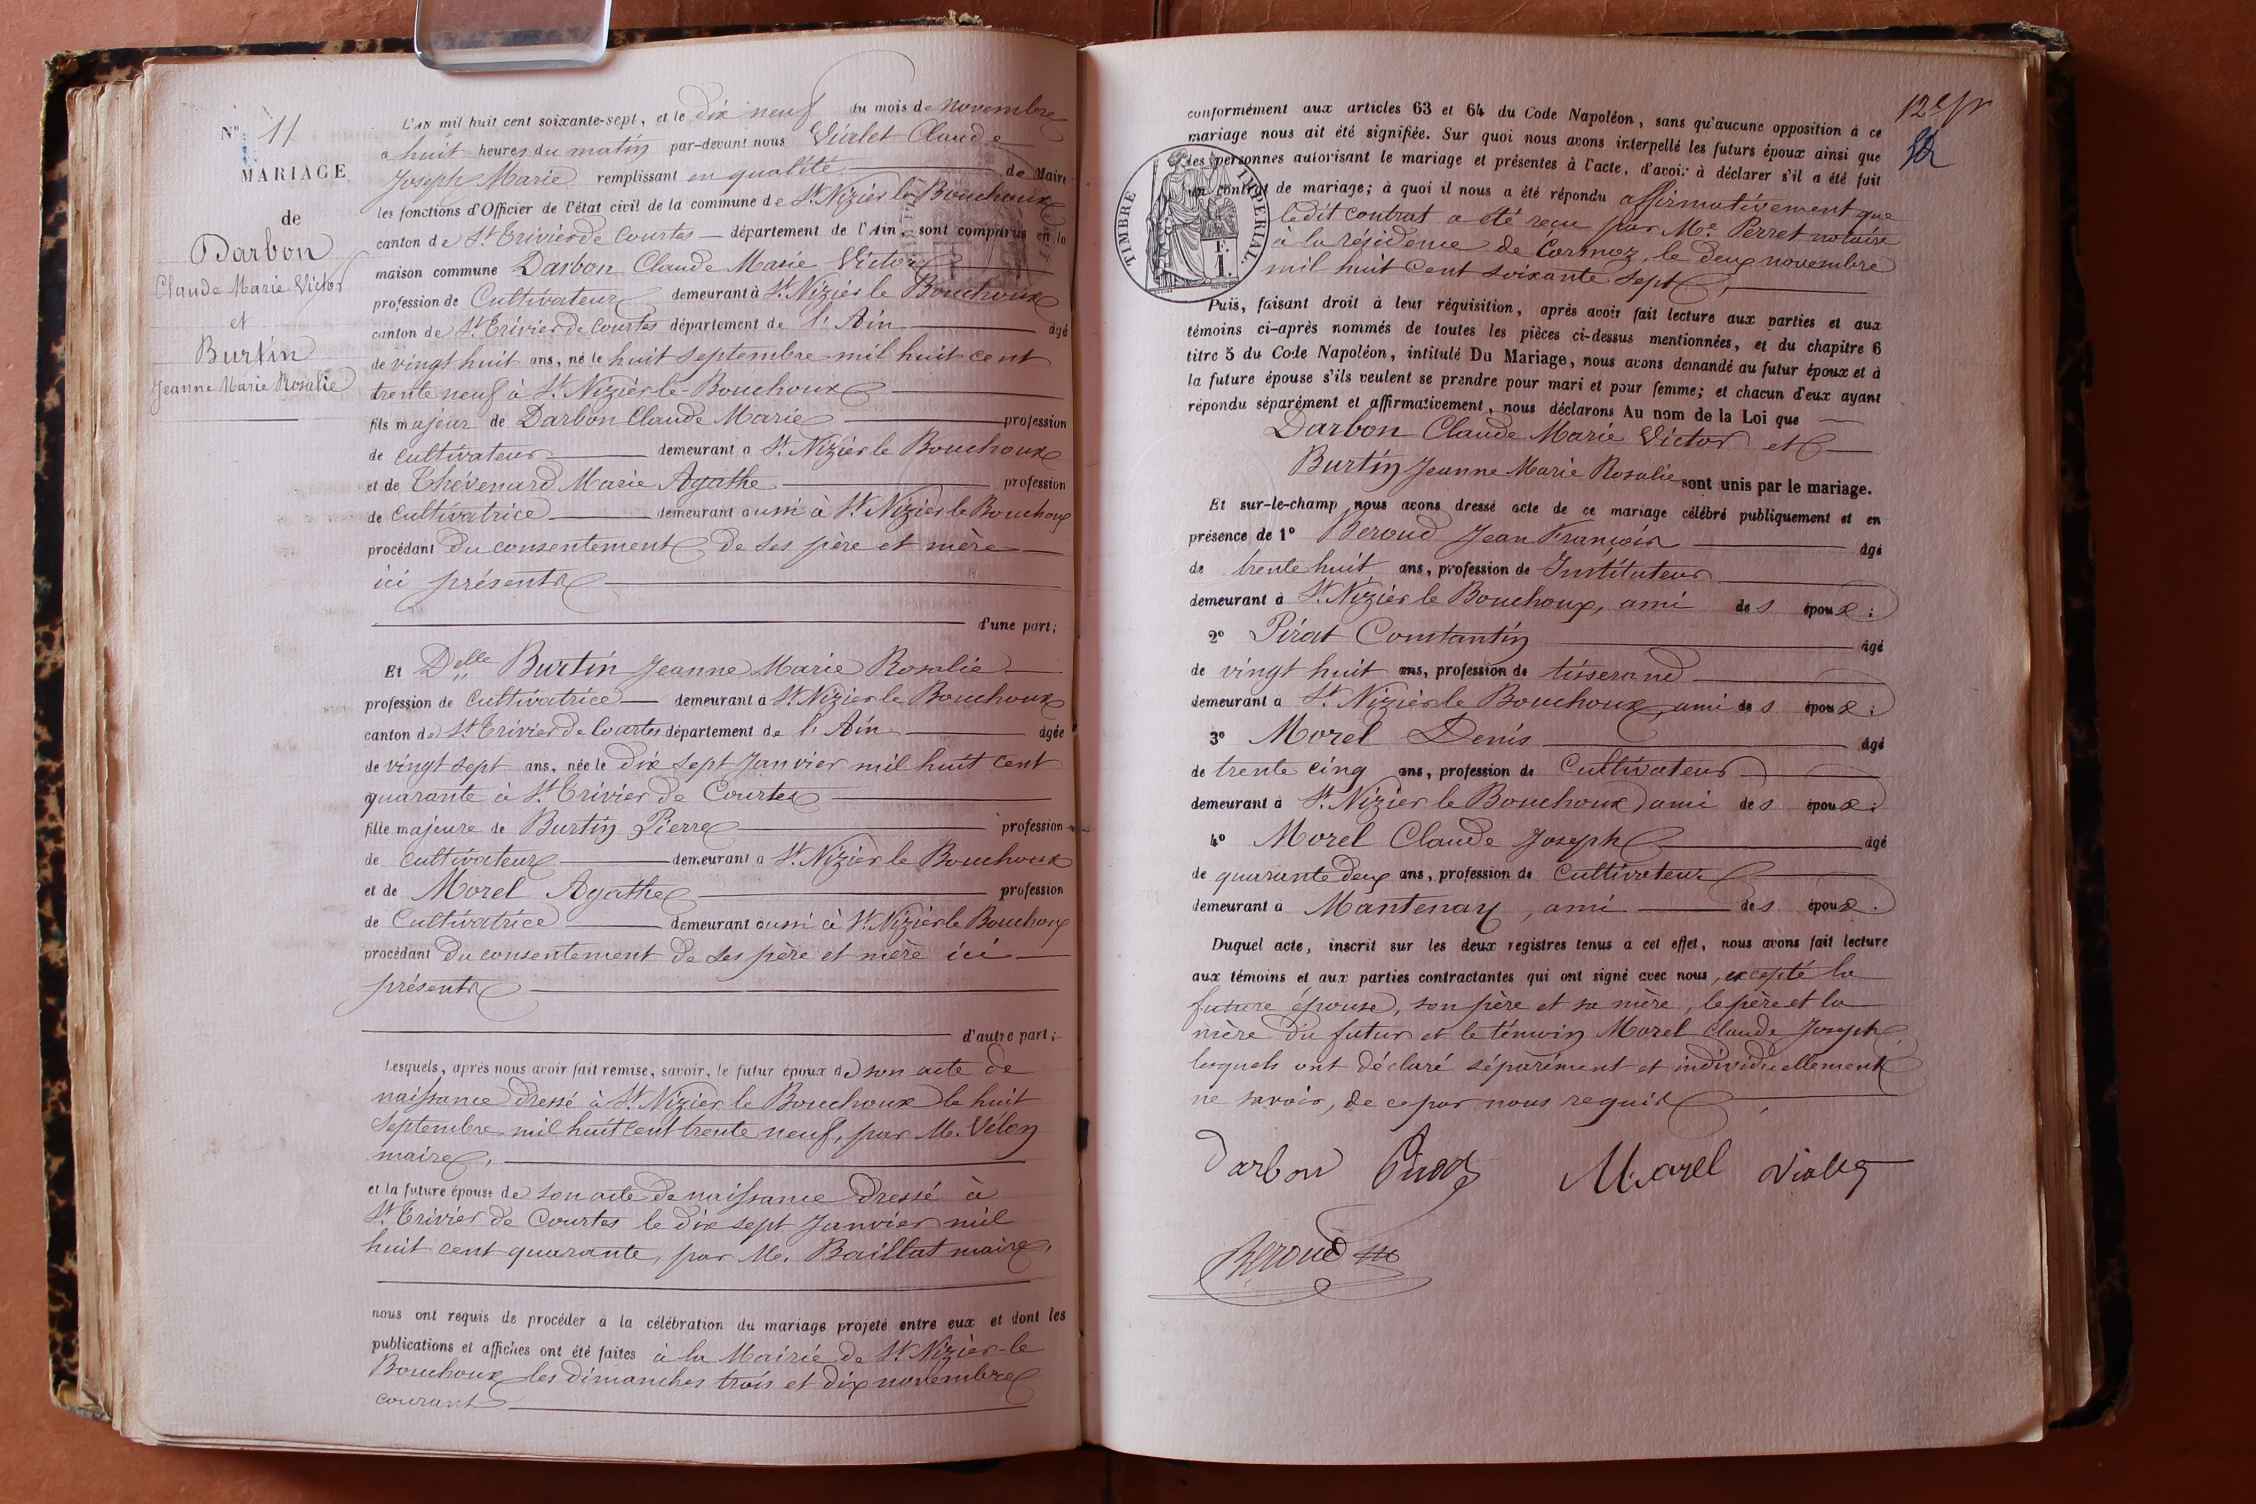 N° 11
MARIAGE
de
Darbon
Claude Marie Victor
et
Burtin
Jeanne Marie Rosalie
L'an mil huit cent soixante-sept, et le dix neuf du mois de novembre
a huit heures du matin par-devant nous Vialet Claude
Joseph Marie remplissant en qualité de Maire
les fonctions d'Officier de l'état civil de la commune de St Nizier le Bouchoux
canton de St Trivier de Courtes département de l'Ain, sont comparus en la
maison commune Darbon Claude Marie Victor
profession de Cultivateur demeurant à St Nizier le Bouchoux
canton de St Trivier de Courtes département de l'Ain âgé
de vingt huit ans, né le huit septembre mil huit cent
trente neuf à St Nizier le Bouchoux
fils majeur de Darbon Claude Marie profession
de cultivateur demeurant a St Nizier le Bouchoux
et de Thévenard Marie Agathe profession
de Cultivatrice demeurant aussi à St Nizier le Bouchoux
procédant du consentement de ses père et mère
ici présents
d'une part;
Et Delle Burtin Jeanne Marie Rosalie
profession de Cultivatrice demeurant a St Nizier le Bouchoux
canton de St Trivier de Courtes département de l'Ain âgée
de vingt sept ans, née le dix sept Janvier mil huit cent
quarante à St Trivier de Courtes
fille majeure de Burtin Pierre profession
de cultivateur demeurant a St Nizier le Bouchoux
et de Morel Agathe profession
de Cultivatrice demeurant aussi à St Nizier le Bouchoux
procédant du consentement de ses père et mère ici
présents
d'autre part;
Lesquels, après nous avoir fait remise, savoir, le futur époux de son acte de
naissance dressé à St Nizier le Bouchoux le huit
Septembre mil huit cent trente neuf, par M. Vélon
maire,
et la future épouse de son acte de naissance dressé à
St Trivier de Courtes le dix sept Janvier mil
huit cent quarante, par M. Baillat maire,
nous ont requis de procéder à la célébration du mariage projeté entre eux et dont les
publications et affiches ont été faites à la Mairie de St Nizier-le
Bouchoux les dimanches trois et dix novembre
courant
conformément aux articles 63 et 64 du Code Napoléon, sans qu'aucune opposition à ce
mariage nous ait été signifiée. Sur quoi nous avons interpellé les futurs époux ainsi que
les personnes autorisant le mariage et présentes à l'acte, d'avoir à déclarer s'il a été fait
un contrat de mariage; à quoi il nous a été répondu affirmativement que
ledit contrat a été reçu par Me Perret notaire
à la résidence de Cormoz, le deux novembre
mil huit cent soixante sept
TIMBRE IMPERIAL.
F.
1.
Puis, faisant droit à leur réquisition, après avoir fait lecture aux parties et aux
témoins ci-après nommés de toutes les pièces ci-dessus mentionnées, et du chapitre 6
titre 5 du Code Napoléon, intitulé Du Mariage, nous avons demandé au futur époux et à
la future épouse s'ils veulent se prendre pour mari et pour femme; et chacun d'eux ayant
répondu séparément et affirmativement, nous déclarons Au nom de la Loi que
Darbon Claude Marie Victor et
Burtin Jeanne Marie Rosalie sont unis par le mariage.
Et sur-le-champ nous avons dressé acte de ce mariage célébré publiquement et en
présence de 1° Beroud Jean François âgé
de trente huit ans, profession de Instituteur
demeurant à St Nizier le Bouchoux, ami des époux;
2° Pirat Constantin âgé
de vingt huit ans, profession de tisserand
demeurant a St Nizier le Bouchoux, ami des époux;
3° Morel Denis âgé
de trente cinq ans, profession de Cultivateur
demeurant à St Nizier le Bouchoux, ami des époux;
4° Morel Claude Joseph âgé
de quarante deux ans, profession de Cultivateur
demeurant a Mantenay, ami des époux.
Duquel acte, inscrit sur les deux registres tenus a cet effet, nous avons fait lecture
aux témoins et aux parties contractantes qui ont signé avec nous, excepté la
future épouse, son père et sa mère, le père et la
mère du futur et le témoin Morel Claude Joseph,
lesquels ont déclaré séparément et individuellement
ne savoir, de ce par nous requis
Darbon Pirat Morel Vialet
Beroud